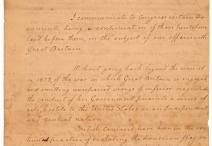 I communicate to Congress certain Do-
cuments, being a continuation of those heretofore
laid before them, on the subject of our affairs with
Great Britain.
Without going back beyond the renewal
in 1803, of the war in which Great Britain is engaged,
and omitting unrepaired wrongs of inferior magnitude,
the conduct of her Government presents a series of
acts, hostile to the United States as an Independent
and neutral nation.
British Cruisers have been in the con-
tinued practice of violating the American flag